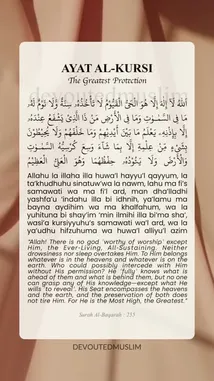 AYAT AL-KURSI
The Greatest Protection
devoutedmuslim
ٱللَّهُ لَآ إِلَـٰهَ إِلَّا هُوَ ٱلْحَىُّ ٱلْقَيُّومُ لَا تَأْخُذُهُۥ سِنَةٌ وَلَا نَوْمٌ لَّهُۥ
مَا فِى ٱلسَّمَـٰوَٰتِ وَمَا فِى ٱلْأَرْضِ مَن ذَا ٱلَّذِى يَشْفَعُ عِندَهُۥٓ
إِلَّا بِإِذْنِهِۦ يَعْلَمُ مَا بَيْنَ أَيْدِيهِمْ وَمَا خَلْفَهُمْ وَلَا يُحِيطُونَ
بِشَىْءٍ مِّنْ عِلْمِهِۦٓ إِلَّا بِمَا شَآءَ وَسِعَ كُرْسِيُّهُ ٱلسَّمَـٰوَٰتِ
وَٱلْأَرْضَ وَلَا يَـُٔودُهُۥ حِفْظُهُمَا وَهُوَ ٱلْعَلِىُّ ٱلْعَظِيمُ
Allahu la illaha illa huwa'l hayyu'l qayyum, la
ta'khudhuhu sinatuw'wa la nawm, lahu ma fi's
samawati wa ma fi'l ard, man dha'lladhi
yashfa'u 'indahu illa bi idhnih, ya'lamu ma
bayna aydihim wa ma khalfahum, wa la
yuhituna bi shay'im 'min ilmihi illa bi'ma sha',
wasi'a kursiyyuhu's samawati wa'l ard, wa la
ya'udhu hifzuhuma wa huwa'l alliyu'l azim
"Allah! There is no god ˹worthy of worship˺ except
Him, the Ever-Living, All-Sustaining. Neither
drowsiness nor sleep overtakes Him. To Him belongs
whatever is in the heavens and whatever is on the
earth. Who could possibly intercede with Him
without His permission? He ˹fully˺ knows what is
ahead of them and what is behind them, but no one
can grasp any of His knowledge—except what He
wills ˹to reveal˺. His Seat encompasses the heavens
and the earth, and the preservation of both does
not tire Him. For He is the Most High, the Greatest."
Surah Al-Baqarah : 255
DEVOUTEDMUSLIM